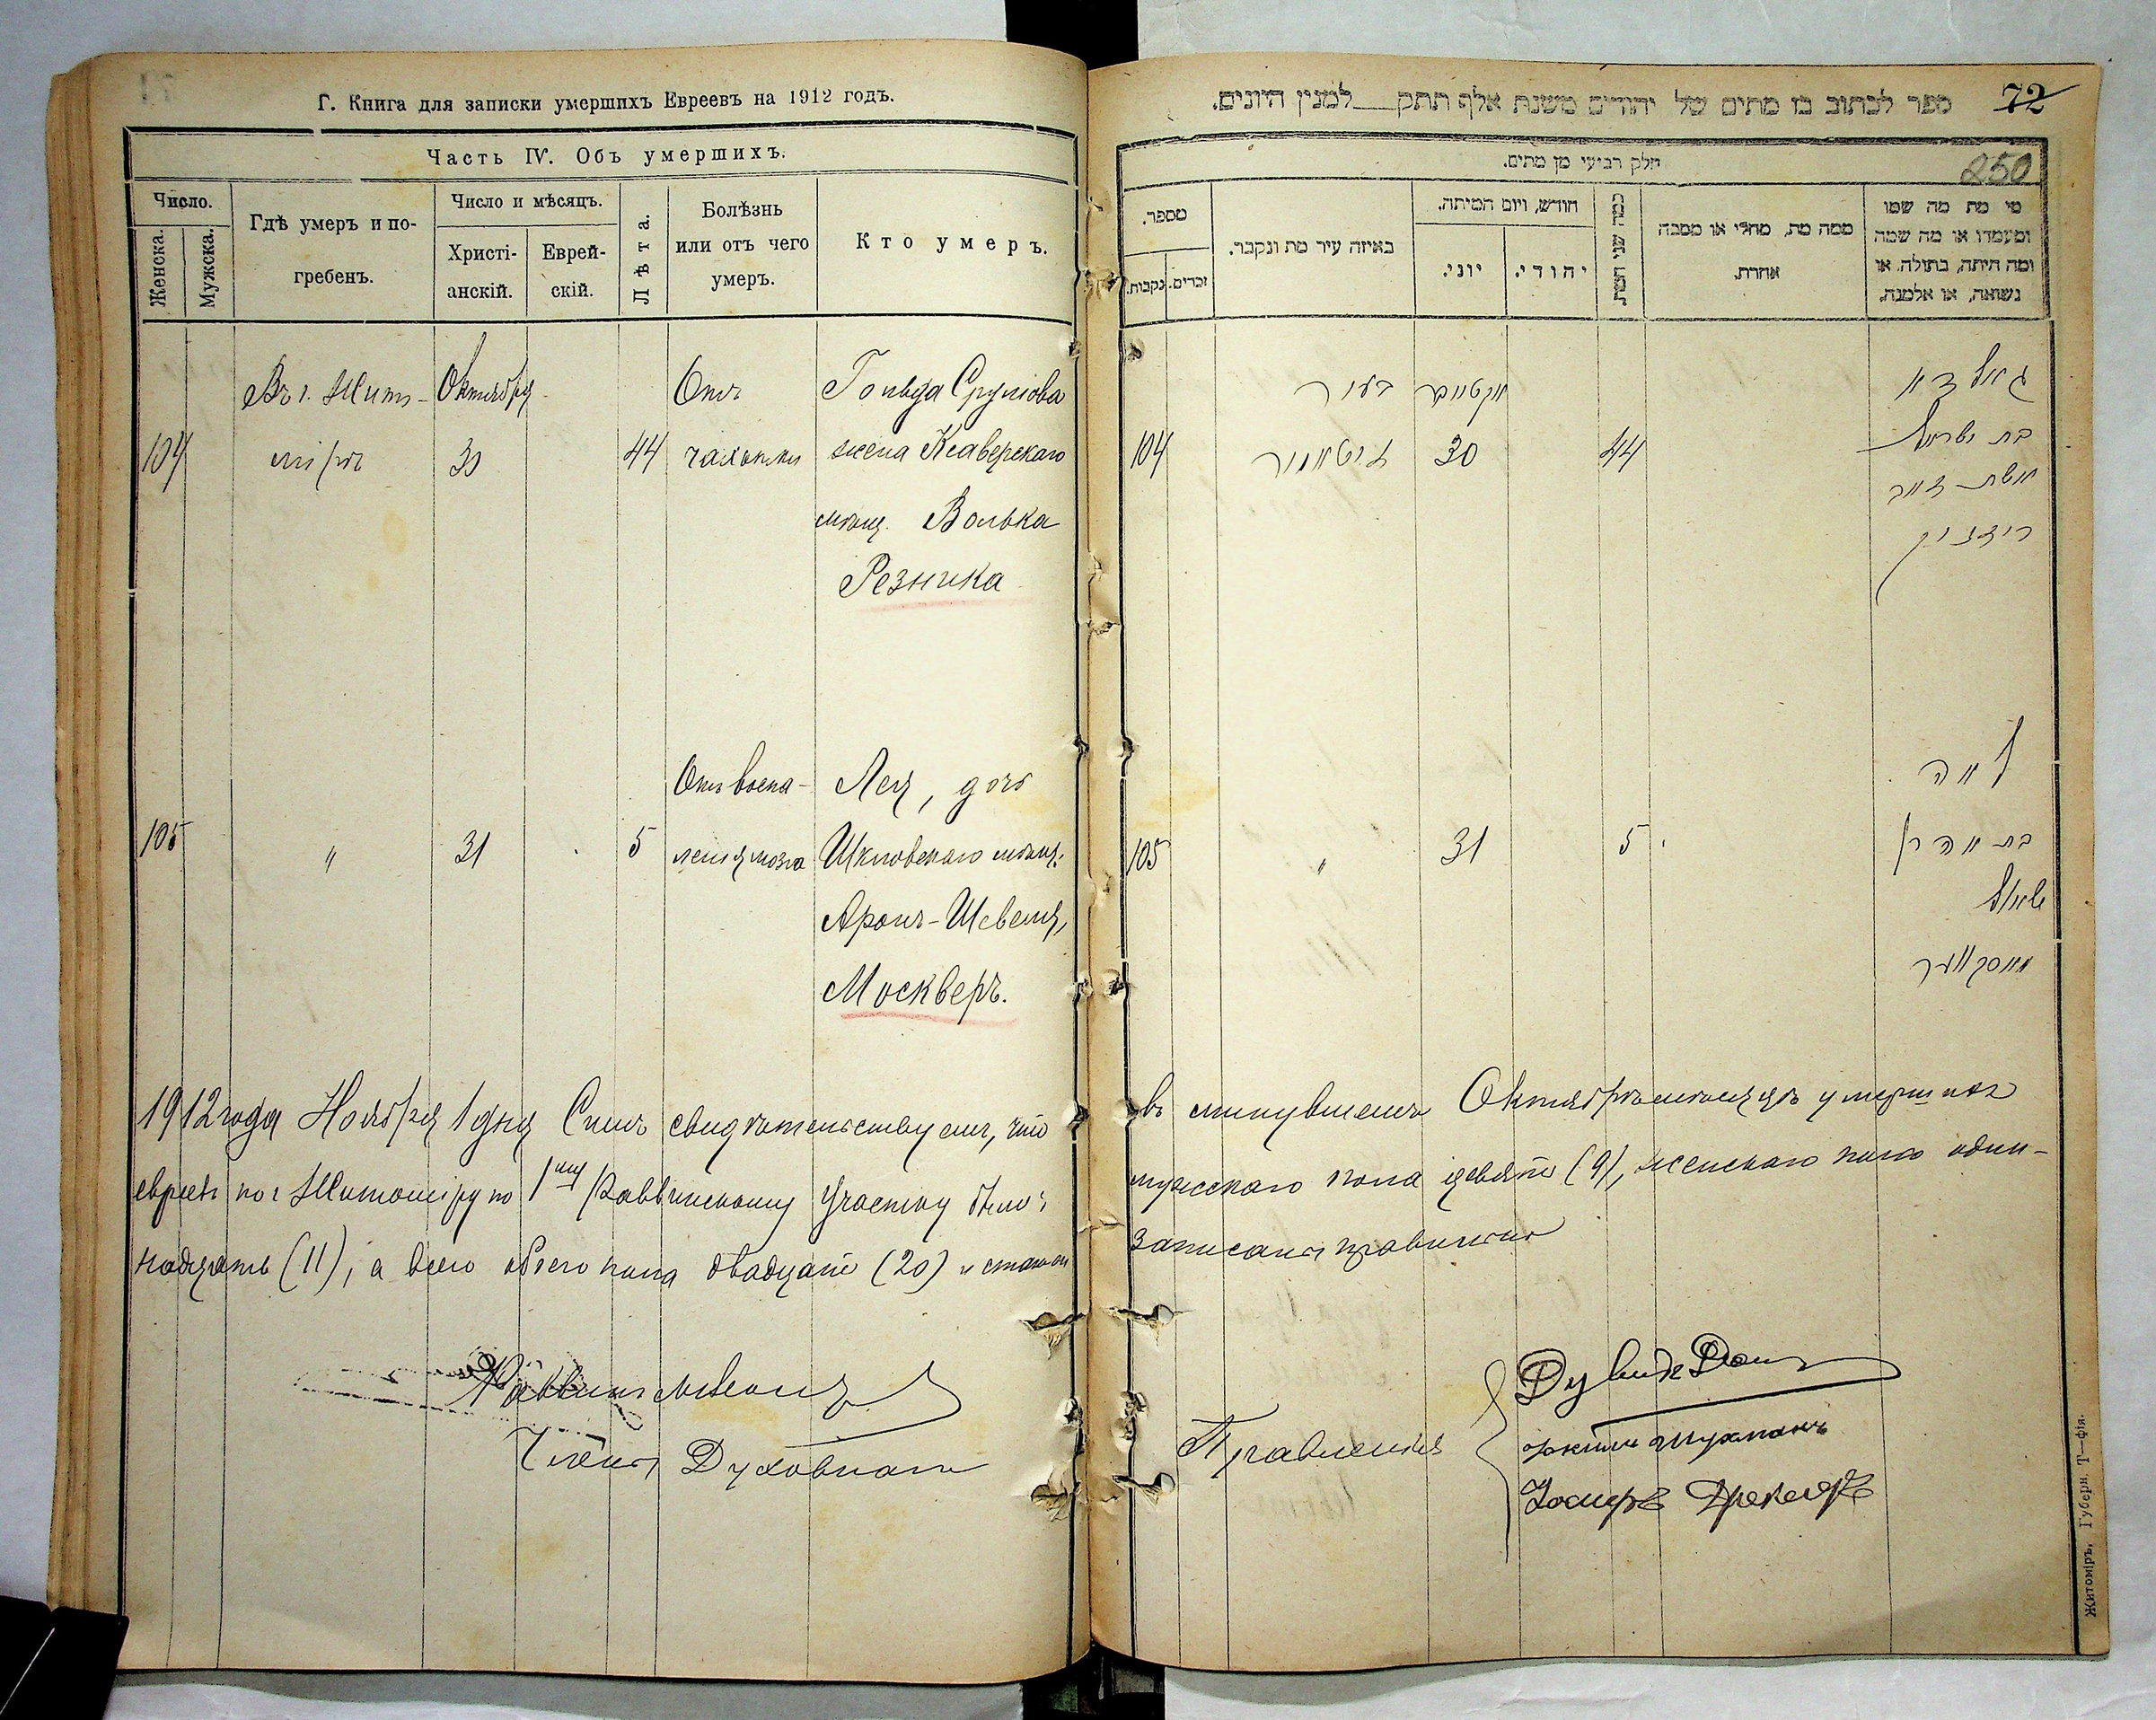 Г. Книга для записи умершихъ Евреевъ на 1912 годъ.
Часть IV. Объ умершихъ.
Число.
Женска.
Мужска.
Гдѣ умеръ и по-
гребенъ.
Число и мѣсяцъ.
Христі-
анскій.
Еврей-
скій.
Лѣта.
Болѣзнь
или отъ чего
умеръ.
Кто умеръ.
104
Въ г. Жито-
мірѣ
Октября
30
44
Отъ
чахотки
Гольда Срулова
жена Ксаверскаго
мѣщ. Волька
Резника
105
"
31
5
Отъ воспа-
ленія мозга
Лея, дочь
Шкловскаго мѣщ.
Аронъ-Шевеля,
Москверъ.
1912 года Ноября 1 дня Симъ свидѣтельствуемъ, что
евреевъ по г Житоміру по 1му Раввинскому Участку было:
надцать (11), а всего обоего пола двадцать (20) и статьи
Раввинъ
Члены Духовнаго
ספר לכתוב בו מתים של יהודים משנת אלף תתק למנין היונים.
72
חלק רביעי מן מתים.
250
מספר.
נקבות.
זכרים.
באיזה עיר מת ונקבר.
חודש, ויום המיתה.
יוני.
יהודי.
כמה שני המת.
ממה מת, מחלי או מסבה
אחרת.
מי מת מה שמו
ומעמדו או מה שמה
ומה היתה, בתולה, או
נשואה, או אלמנה.
104
בעיר
זיטאמיר
אקטאבר
30
44
גאלדא
בת ישראל
אשת זאב
רעזניק
105
"
31
5
לאה
בת אהרן
שאול
מאסקווער
въ минувшемъ Октябрѣ мѣсяцѣ умершихъ
мужскаго пола девять (9), женскаго пола один-
записаны правильно
Правленія
Житоміръ, Губерн. Т—фія.